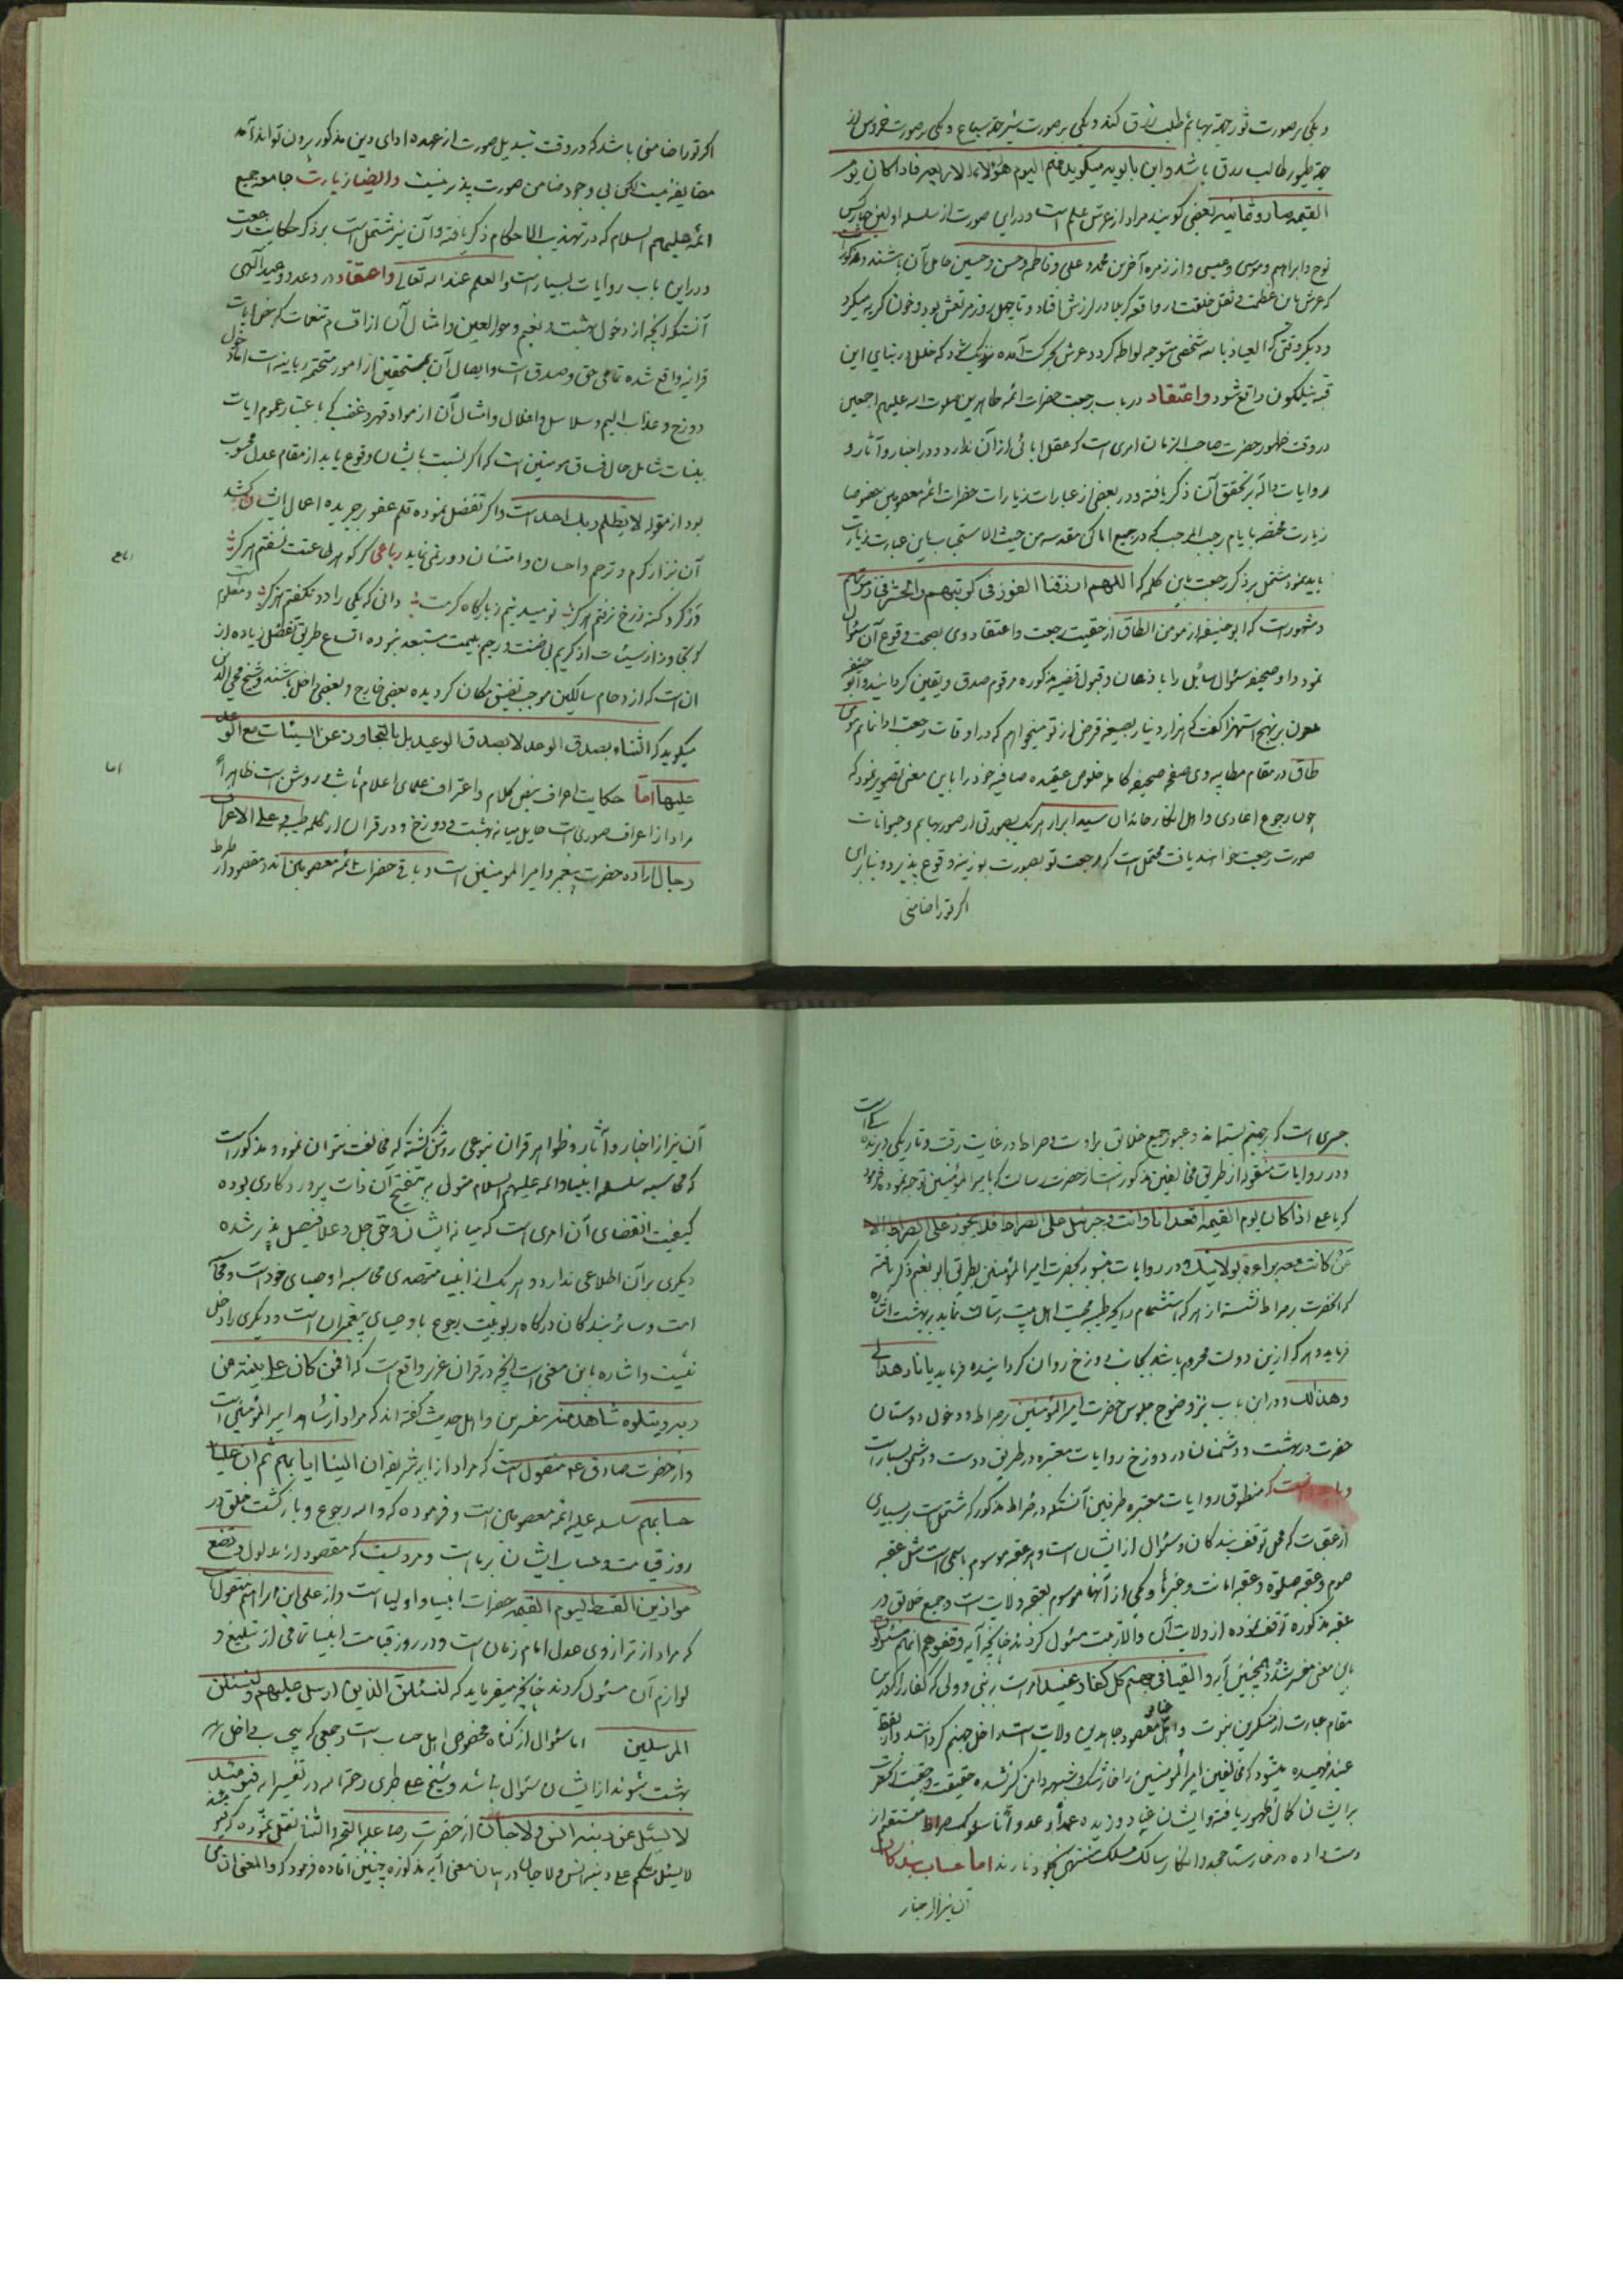 و یکی بر صورت ثور جهة بهائم طلب رزق کند و یکی بر صورت شیر جهة سباع و یکی بر صورت خروس از
جهة طیور طالب رزق باشد و این بابویه میکوید فهم الیوم هؤلاء الاربعه فاذا کان یوم
القیمه صاروا ثمانیه بعضی کویند مراد از عرش علم است و در این صورت از سلسله اولین چهار کس
نوح و ابراهیم و موسی و عیسی و از زمره آخرین محمد و علی و فاطمه و حسن و حسین حامل آن باشند و مذکور
که عرش باین عظمت و ثقل خلقت در واقعه کربلا در لرزش افتاد و تا چهل روز مرتعش بود و خون کریه میکرد
و دیکر وقتی که العیاذ بالله شخصی متوجه لواطه کردد عرش بحرکت آمده نزدیک شود که خلل در بنای این
قبه نیلکون واقع شود واعتقاد در باب رجعت حضرات ائمه طاهرین صلوات الله علیهم اجمعین
در وقت ظهور حضرت صاحب الزمان امری است که عقل ابائی از آن ندارد و در اخبار و آثار و
روایات داله بر تحقق آن ذکر یافته و در بعضی از عبارات زیارات حضرات ائمه معصومین خصوصا
زیارت مختصه بایام رجب المرجب که در جمیع اماکن مقدسه من حیث الاستحباب باین عبارت زیارت
باید نمود مشتمل بر ذکر رجعت باین کلمه که اللهم ارزقنا الفوز فی کرتهم والحشر فی زمرتهم
و مشهور است که ابو حنیفه از مومن الطاق از حقیت رجعت و اعتقاد وی بصحت وقوع آن سؤال
نمود و او صحیفه سئوال سایل را باذعان و قبول قضیه مذکوره مرقوم صدق و یقین کردانید و ابو حنیفه
ملعون بر نهج استهزا کفت که هزار دینار بصیغه قرض از تو میخواهم که در اوقات رجعت ادا نمایم مومن
طاق در مقام مطایبه وی صفحه صحیفه کامله خلوص عقیده صافیه خود را باین معنی تصویر نمود که
چون رجوع اعادی و اهل انکار خاندان سید ابرار هر یک بصورتی از صور بهایم و حیوانات
صورت رجعت خواهند یافت محتمل است که رجعت تو بصورت بوزینه وقوع پذیرد و بنابراین
اکر تو را ضامنی
اکر تو را ضامنی باشد که در وقت تبدیل صورت از عهده ادای دین مذکور برون تواند آمد
مضایقه نیست لکن بی وجود ضامن صورت پذیر نیست وایضا زیارت جامعه جمیع
ائمه علیهم السلام که در تهذیب الاحکام ذکر یافته و آن نیز مشتمل است بر ذکر حکایت رجعت
و در این باب روایات بسیار است والعلم عند الله تعالی واعتقاد در وعد و وعید آلهی
آنستکه آنچه از دخول بهشت و نعیم و حور العین و امثال آن از اقسام تنعمات که بنص آیات
قرآنیه واقع شده تمامی حق و صدق است و ایصال آن بمستحقین از امور متحتمه ربانیه است اما دخول
دوزخ و عذاب الیم و سلاسل و اغلال و امثال آن از مواد قهر و غضب که باعتبار عموم ایات
بینات شامل حال فساق مومنین است که اکر نسبت بایشان وقوع یابد از مقام عدل محسوب
بود از مقوله لا یظلم ربک احدا است و اکر تفضل نموده قلم عفو بر جریده اعمال ایشان کشد
آن نیز از کرم و ترحم و احسان و امتنان دور نمی نماید رباعی کر کوهر طاعتت نسفتم هرکز
ور کرد کنه ز رخ نرفتم هرکز نومید نیم ز بارکاه کرمت زان که یکی را دو نکفتم هرکز و معلوم
که تجاوز از سیئات از کریم بی ضنت و رحیم بیمنت مستبعد نبوده اتساع طریق تفضل زیاده از
ان است که ازدحام سالکین موجب تضییق مکان کردیده بعضی خارج و بعضی داخل باشند و شیخ محی الدین
میکوید که الثناء بصدق الوعد لا بصدق الوعید بل بالتجاوز عن السیئات مع التوعد
علیها اما حکایت اعراف بنص کلام و اعتراف علمای اعلام ثابت و روشن است ظاهرا
مراد از اعراف صوری است حایل میانه بهشت و دوزخ و در قران از کلمه طیبه و علی الاعراف
رجال اراده حضرت پیغمبر و امیر المومنین است و باقی حضرات ائمه معصومین اند و مقصود از صراط
اما
جسری است که بر جهنم بسته اند و عبور جمیع خلایق بر اوست و صراط در غایت رقت و تاریکی و برنده کی است
و در روایات منقوله از طریق مخالفین مذکور است از حضرت رسالت که بامیر المؤمنین توجه نموده فرمود
که یا علی اذا کان یوم القیمه اقعد انا وانت وجبرئیل علی الصراط فلا یجوز علی الصراط الا
من کانت معه براءة بولایتک و در روایات منسوبه بحضرت امیر المؤمنین بطریق ابو نعیم ذکر یافته
که آنحضرت بر صراط نشسته از هر که استشمام رایحه طیبه محبت اهل بیت رسالت نماید به بهشت اشاره
فرماید و هر که ازین دولت محروم باشد بجانب دوزخ روان کردانیده فرماید یا نار هذا لی
وهذا لک و در این باب نیز وضوح جلوس حضرت امیر المؤمنین بر صراط و دخول دوستان
حضرت در بهشت و دشمنان در دوزخ روایات معتبره در طریق دوست و دشمن بسیار است
که منطوق روایات معتبره طرفین آنستکه در صراط مذکور که مشتمل است بر بسیاری
از عقبات که محل توقف بندکان و سئوال از ایشان است و هر عقبه موسوم باسمی است مثل عقبه
صوم و عقبه صلوة و عقبه امانت و غیرها و یکی از آنها موسوم بعقبه ولایت است و جمیع خلایق در
عقبه مذکوره توقف نموده از ولایت آن والا رتبت مسئول کردند چنانچه آیه وقفوهم انهم مسئولون
باین معنی مفسر شده و همچنین آیه القیا فی جهنم کل کفار عنید
مقام عبارت از منکرین نبوت و اهل عناد مقصود جاحدین ولایت است داخل جهنم کردانند و از لفظ
عنید فهمیده میشود که مخالفین امیر المؤمنین را خار شک و شبهه دامن کیر نشده حقیقت و حقیت آنحضرت
بر ایشان کمال ظهور یافته و ایشان عناد ورزیده عمدا و عدوانا سلوک صراط مستقیم از
دست داده در خارستان جحد و انکار سالک مسلک منتهی بخلود نارند اما حساب بندکان
آن نیز از اخبار
آن نیز از اخبار و آثار و ظواهر قران بنوعی روشن کشته که مخالفت نتوان نمود و مذکور است
که محاسبه سلسله انبیا و ائمه علیهم السلام متولی به تنقیح آن ذات پرورد کاری بوده
کیفیت انقضای آن امری است که میانه ایشان و حق جل و علا فیصل پذیر شده
دیکری بر آن اطلاعی ندارد و هر یک از انبیا متصدی محاسبه اوصیای خود است و محاسبه
امت و سائر بندکان درکاه ربوبیت رجوع باوصیای پیغمبران است و دیکری را دخلی
نیست و اشاره باین معنی است آنچه در قران عزیز واقع است که افمن کان علی بینة من
ربه ویتلوه شاهد منه مفسرین و اهل حدیث کفته اند که مراد از شاهد امیر المؤمنین است
و از حضرت صادق ع منقول است که مراد از آیه شریفه ان الینا ایابهم ثم ان علینا
حسابهم سلسله علیه ائمه معصومین است و فرموده که والله رجوع و بازکشت خلق در
روز قیامت و حساب ایشان بر ماست و مرویست که مقصود از مدلول ونضع
موازین القسط لیوم القیمه حضرات انبیا و اولیا است و از علی ابن ابراهیم منقول است
که مراد از ترازوی عدل امام زمان است و در روز قیامت انبیا تمامی از تبلیغ و
لوازم آن مسئول کردند چنانچه میفرماید که لنسئلن الذین ارسل علیهم ولنسئلن
المرسلین اما سئوال از کناه مخصوص اهل حساب است و جمعی که بیحساب داخل
بهشت شوند از ایشان سئوال نباشد و شیخ طبرسی رحمه الله در تفسیر آیه فیومئذ
لا یسئل عن ذنبه انس ولا جان از حضرت رضا علیه التحیه والثنا نقل نموده که فیومئذ
لا یسئل منکم عن ذنبه انس ولا جان در بیان معنی آیه مذکوره چنین افاده فرمود که والمعنی ان من